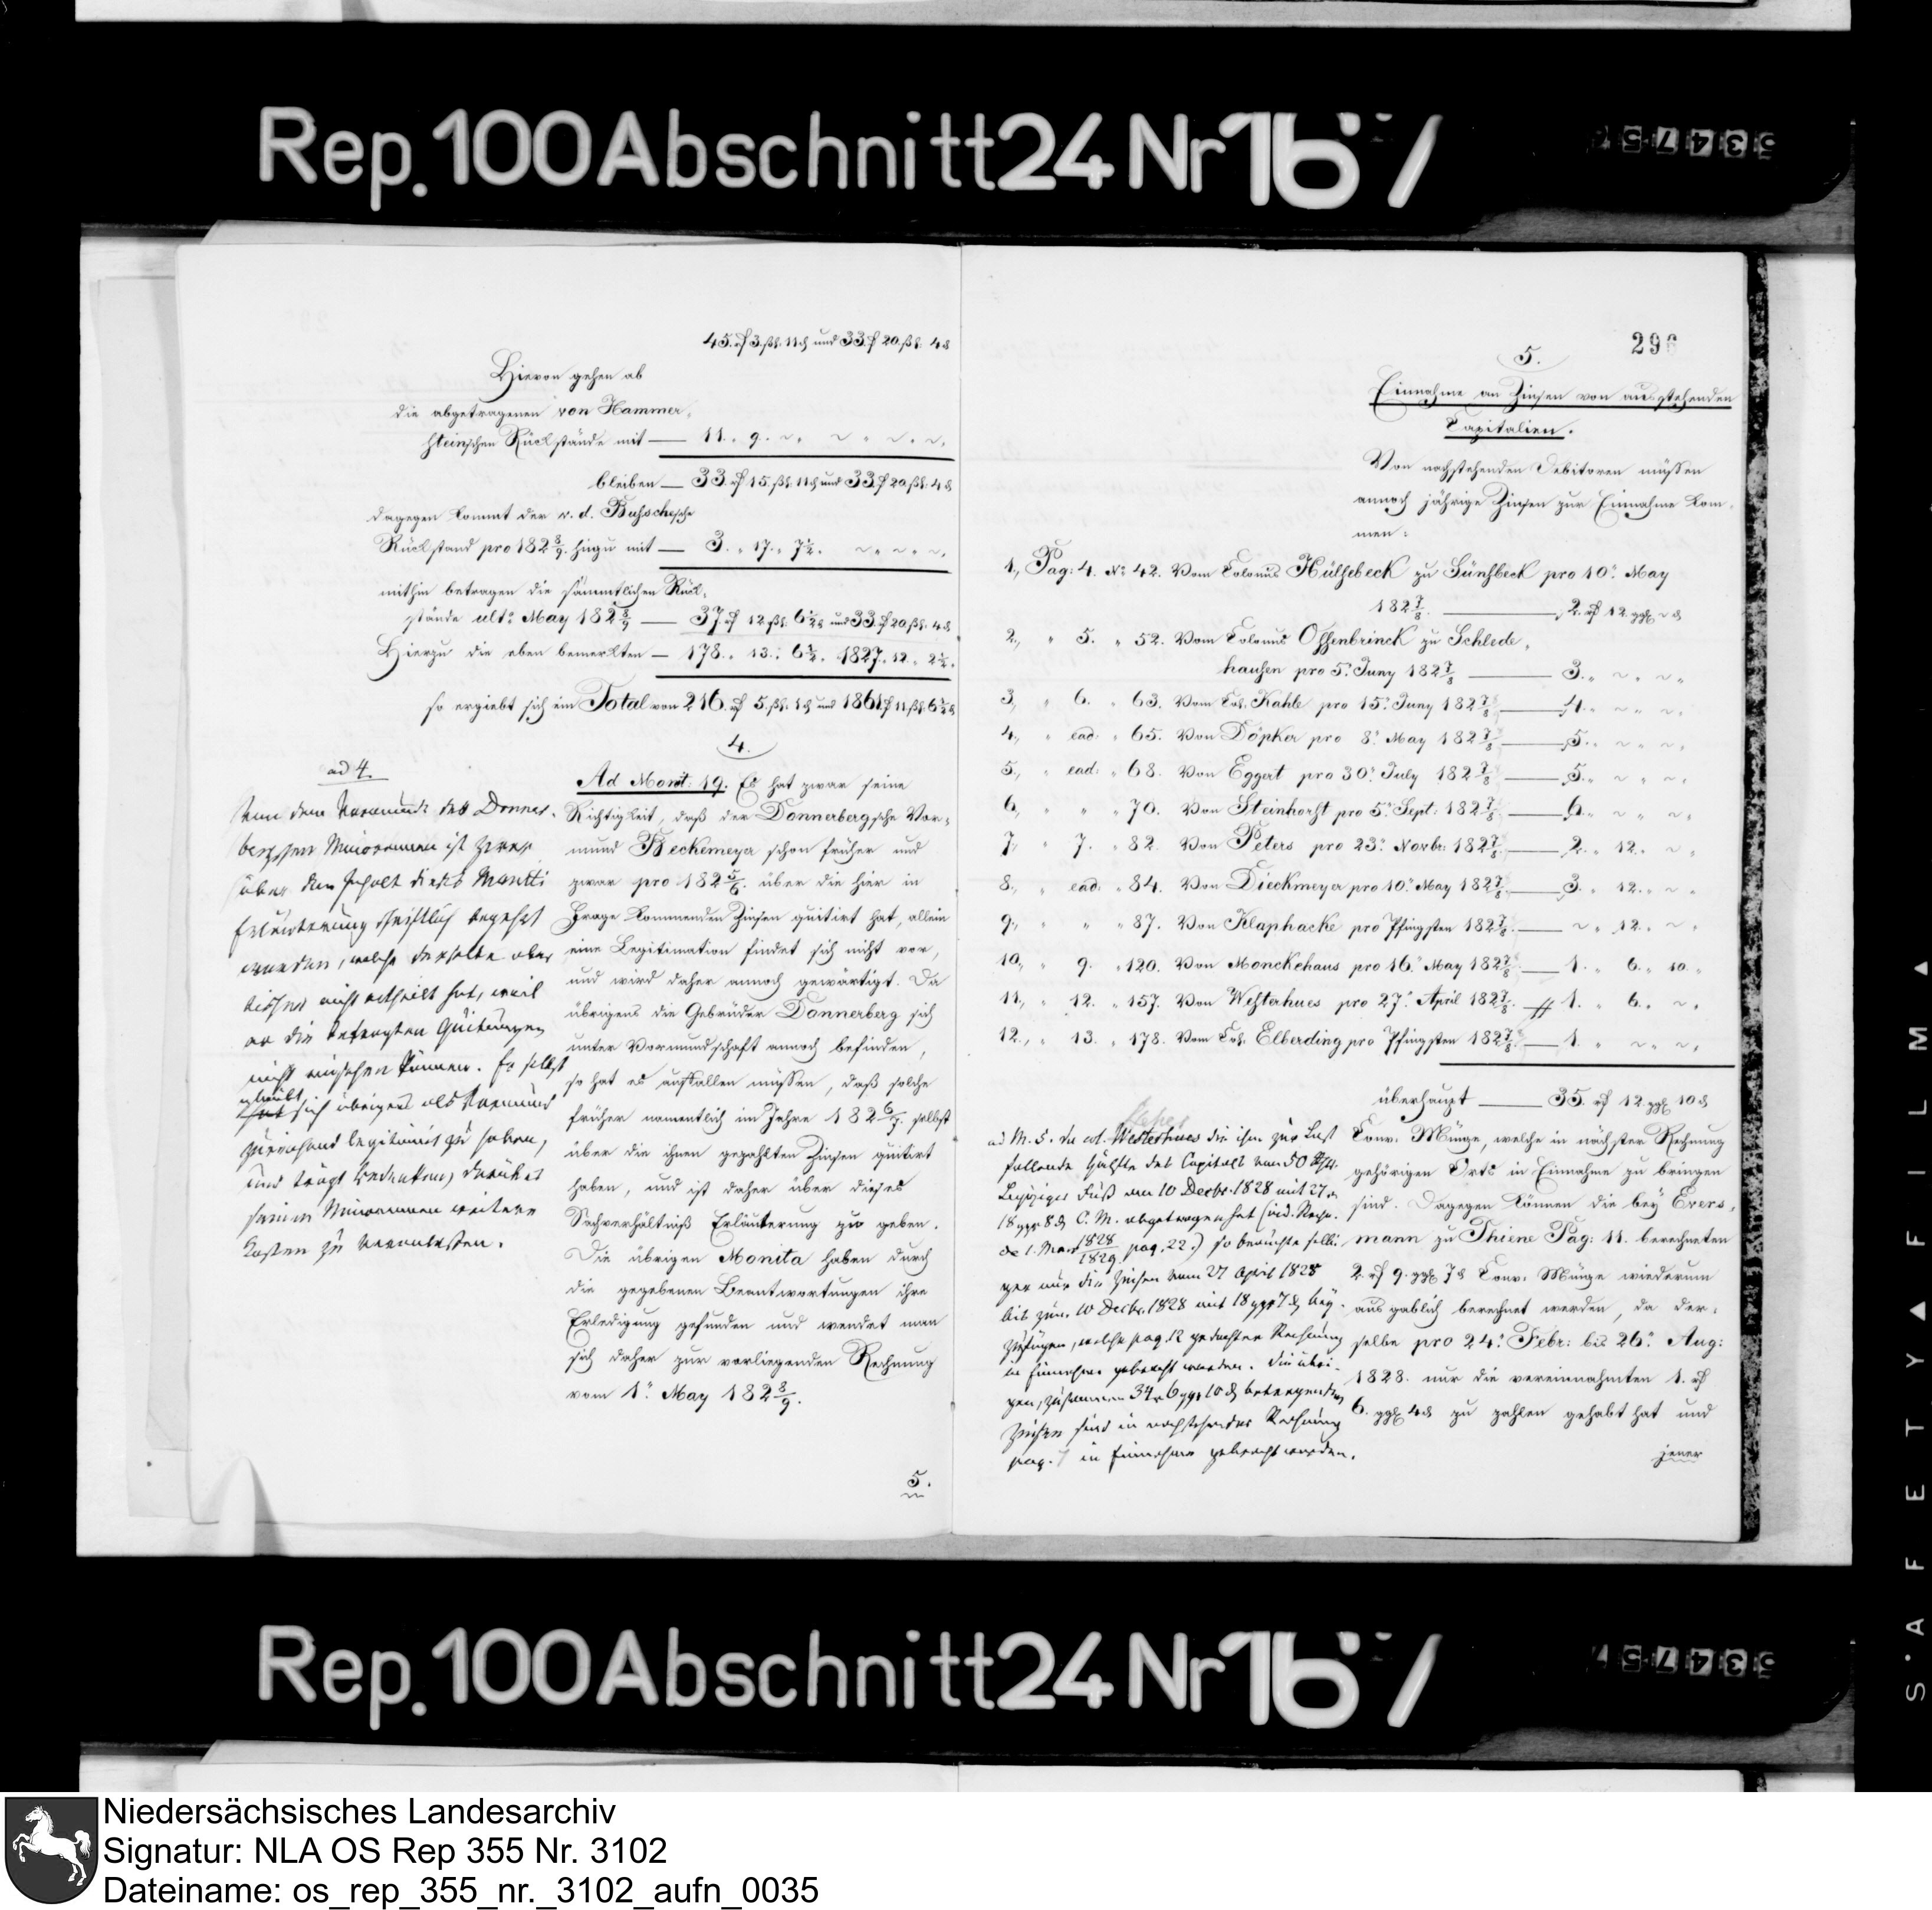 Rep. 100 Abschnitt 24 Nr 167
45. rf 3. ßl. 11 d und 33. f 20. ßl. 4 d
Hievon gehen ab
die abgetragenen von Hammer-
steinschen Rückstände mit — 11. „ 9. „ ~ „ ~ „ ~. ~.
bleiben — 33. rf 15. ßl. 11 d und 33. f 20. ßl. 4 d
dagegen kommt der v. d. Busschesche
Rückstand pro 182 8/9. hinzu mit — 3. „ 17. „ 7½. ~ „ ~ „ ~.
mithin betragen die sämmtlichen Rück-
stände ult: May 182 8/9 — 37. rf 12. ßl. 6½ d und 33. f 20. ßl. 4 d
Hierzu die oben bemerkten — 178. „ 13. „ 6½. 1827. 12. „ 2½.
so ergiebt sich ein Total von 216. rf 5. ßl. 1 d und 1861 f 11. ßl. 6½ d
4.
Ad Monit: 19. Es hat zwar seine
Richtigkeit, daß der Donnerbergsche Vor-
mund Beckemeyer schon früher und
zwar pro 182 5/6. über die hier in
Frage kommenden Zinsen quitirt hat, allein
eine Legitimation findet sich nicht vor,
und wird daher annoch gewärtigt. Da
übrigens die Gebrüder Donnerberg sich
unter Vormundschaft annoch befinden,
so hat es auffallen müssen, daß solche
früher namentlich im Jahre 182 6/7. selbst
über die ihnen gezahlten Zinsen quitirt
haben, und ist daher über dieses
Sachverhältniß Erläuterung zu geben.
Die übrigen Monita haben durch
die gegebenen Beantwortungen ihre
Erledigung gefunden und wendet man
sich daher zur vorliegenden Rechnung
vom 1. May 182 8/9.
5.
ad 4.
Von dem Vormunde des Donner-
bergschen Minorennen ist zwar
über den Inhalt dieses Moniti
Erläuterung schriftlich begehrt
worden, welche derselbe aber
bisher nicht ertheilt hat, weil
er die befragten Quitungen
nicht einsehen können. Er selbst
glaubt sich übrigens als Vormund
zureichend legitimirt zu haben,
und trägt Bedenken, darüber
seinen Minorennen weitere
Kosten zu veranlassen.
296
5.
Einnahme an Zinsen von ausstehenden
Capitalien.
Von nachstehenden Debitoren müssen
annoch jährige Zinsen zur Einnahme kom-
men:
1., Pag: 4. No 42. Vom Colonus Hülsebeck zu Lünsbeck pro 10. May
182 7/8. — 2. rf 12. ggl ~ d
2., „ 5. „ 52. Vom Colonus Ossenbrinck zu Schlede-
hausen pro 5. Juny 182 7/8 — 3. „ ~ „ ~ „
3., „ 6. „ 63. Vom Col. Kahle pro 15. Juny 182 7/8 — 4. „ ~ „ ~.
4., „ ead: „ 65. Von Döpker pro 8. May 182 7/8 — 5. „ ~ „ ~.
5., „ ead: „ 68. Von Eggert pro 30. July 182 7/8 — 5. „ ~ „ ~.
6., „ „ „ 70. Von Steinhorst pro 5. Sept: 182 7/8 — 6. „ ~ „ ~.
7., „ 7. „ 82. Von Peters pro 23. Novbr: 182 7/8. — 2. „ 12. „ ~.
8., „ ead: „ 84. Von Dieckmeyer pro 10. May 182 7/8 — 3. „ 12. „ ~ „
9., „ „ „ 87. Von Klaphacke pro Pfingsten 182 7/8. — ~ „ 12. „ ~ „
10., „ 9. „ 120. Von Monckehaus pro 16. May 182 7/8 — 1. „ 6. „ 10. „
11., „ 12. „ 157. Von Westerhues pro 27. April 182 7/8. — 1. „ 6. „ ~.
12., „ 13. „ 178. Vom Col. Elberding pro Pfingsten 182 7/8 — 1. „ ~ „ ~.
überhaupt — 35. rf 12. ggl 10 d
Conv. Münze, welche in nächster Rechnung
gehörigen Orts in Einnahme zu bringen
sind. Dagegen können die bey Evers-
mann zu Thiene Pag: 11. berechneten
2. rf 9. ggl 7 d Conv. Münze wiederum
ausgablich berechnet werden, da der-
selbe pro 24. Febr: bis 26. Aug:
1828. nur die vereinnahmten 1. rf
6. ggl 4 d zu zahlen gehabt hat und
jener
ad M. 5. da col. Westerhues die ihm zur Last
fallende Hälfte des Capitals von 50
Leipziger Fuß am 10 Decbr. 1828 mit 27
18 ggr 8 d C. M. abgetragen hat (vid. Rechn.
de 1. Mai 1828/1829 pag. 22.) so brauchte selbi-
ger nur die Zinsen vom 27 April 1828
bis zum 10 Decbr. 1828 mit 18 ggr 7 d bey-
zufügen, welche pag. 12 gedachter Rechnung
in Einnahme gebracht worden. Die übri-
gen, zusammen 34 6 ggr 10 d betragenden
Zinsen sind in nachstehender Rechnung
pag. 7 in Einnahme gebracht worden.
SAFETY FILM
Rep. 100 Abschnitt 24 Nr 167
Niedersächsisches Landesarchiv
Signatur: NLA OS Rep 355 Nr. 3102
Dateiname: os_rep_355_nr._3102_aufn_0035